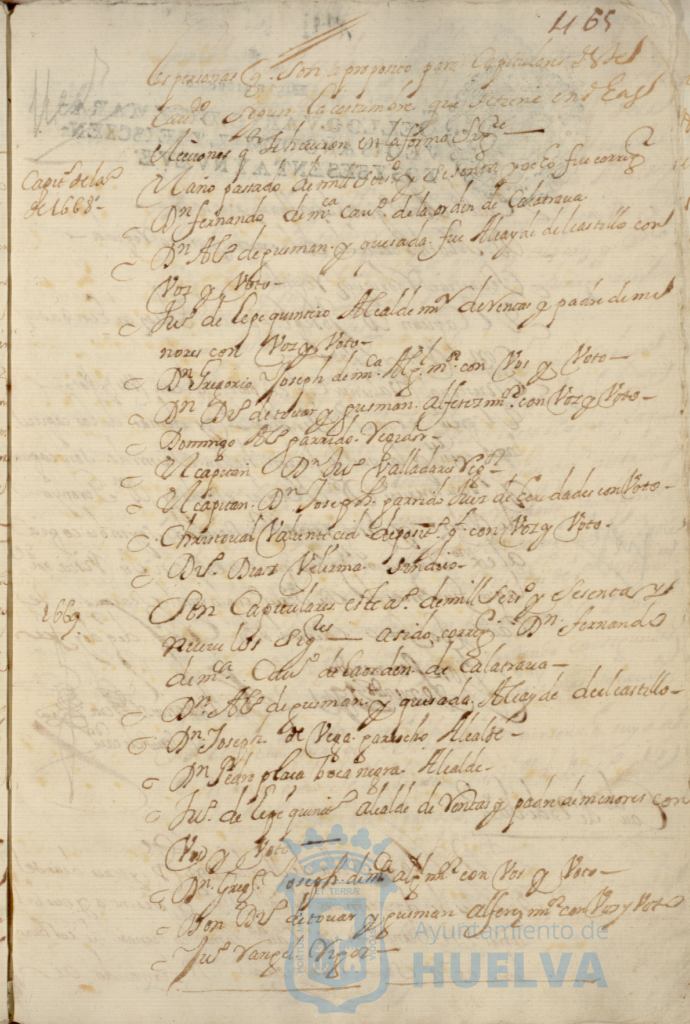 465
las personas q. son a proposito para Capitulares deste
Cavdo. segun la costumbre que se tiene en las
elecciones q. se hicieron en la forma sigte
Capits. de laño
de 1668.
El año pasado de mil seiso. y sesenta y ocho fue corregr
Dn fernando de mca cavo. de la orden de Calatrava
Dn Alo. de gusman y quesada fue Alcayde del castillo con
Voz y Voto
Juo. de lepe quintero Alcalde mr de ventas y padre de me
nores con Voz y Voto
Dn Gregorio Joseph de mca Algl mr. con Vos y Voto
Dn Do. de tovar y gusman alferez mr. con Voz y Voto
Domingo Alo. garrido Regidor
El capitan Dn Juo. Valladares Regr
El capitan Dn Joseph garrido fiel de con Voto
Christoual Valiente cid deposito. gl. con Voz y Voto
Do. Diaz sindico
1669.
Son Capitulares este ao. de mill seiso y sesenta y
nueve los sigtes a sido corregr. Dn. fernando
de mca. Cavo de la orden de Calatrava
Dn. Alo de gusman y quesada Alcayde del castillo
Dn Joseph de Vega garrocho Alcalde
Dn Pedro plaça boca negra Alcalde
Juo. de lepe quinto alcalde de Ventas y padre de menores con
Voz y Voto
Dn. Grego. Joseph de mca algl mr con Vos y Voto
Don Do. de tovar y gusman alferez mr. con Voz y Voto
Juo. Rangel Regor
Ayuntamiento de
HUELVA